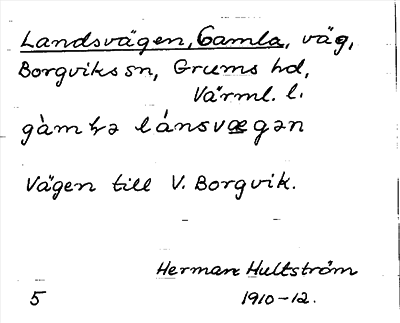 Landsvägen, Gamla, väg,
Borgviks sn, Grums hd,
Värml. l.
gàmɫə lánsvægən
Vägen till V. Borgvik.
Herman Hultström
5 1910-12.